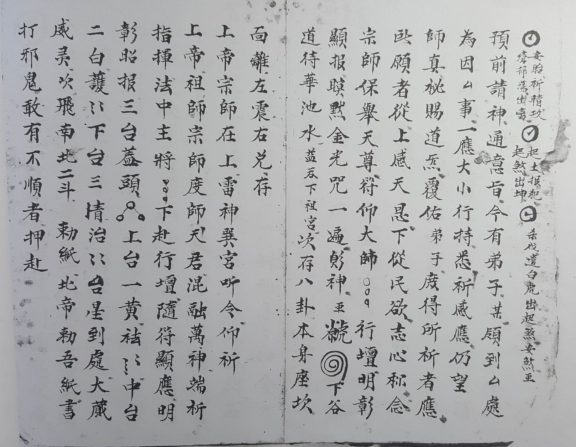 安胎祈精攻
起土摸犯
起煞出坤
預前請神通意旨今有弟子某願到ム處
為因ム事一應大小行持悉祈感應仍望
師真秘賜道炁覆佑弟子虔得所祈者應
所願者從上感天恩下從民欲志心称念
宗師保舉天尊符仰大師 行壇明彰
顯報瞙默金光咒一遍 神 下谷
道待華池水 下祖宮次存八卦本身座坎
面離左震右兌存
上帝宗師在上雷神巽宮听令仰祈
上帝祖師宗師度師天君混融萬神端祈
指揮法中主將 下赴行壇隨符顯應明
彰昭报三台蓋頭 上台一黄祛〻中台
二白護〻下台三情治〻台星到處大藏
威灵次飛南北二斗 勅紙北帝勅吾紙書
打邪鬼敢有不順者押赴